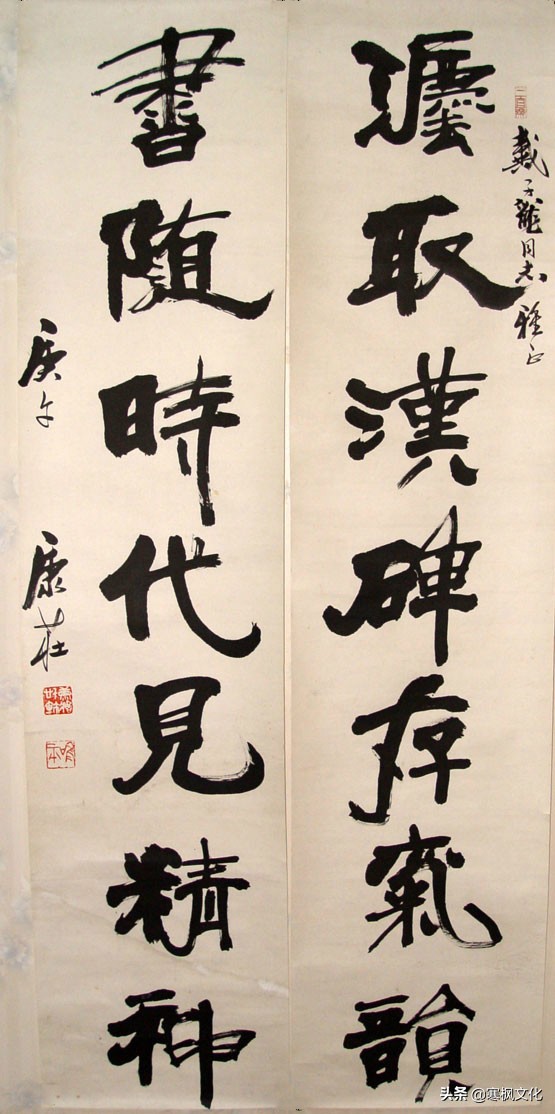 戴子龍同志雅正
灋取漢碑存氣韻
書随時代見精神
庚午 康莊
头条 @寒枫文化